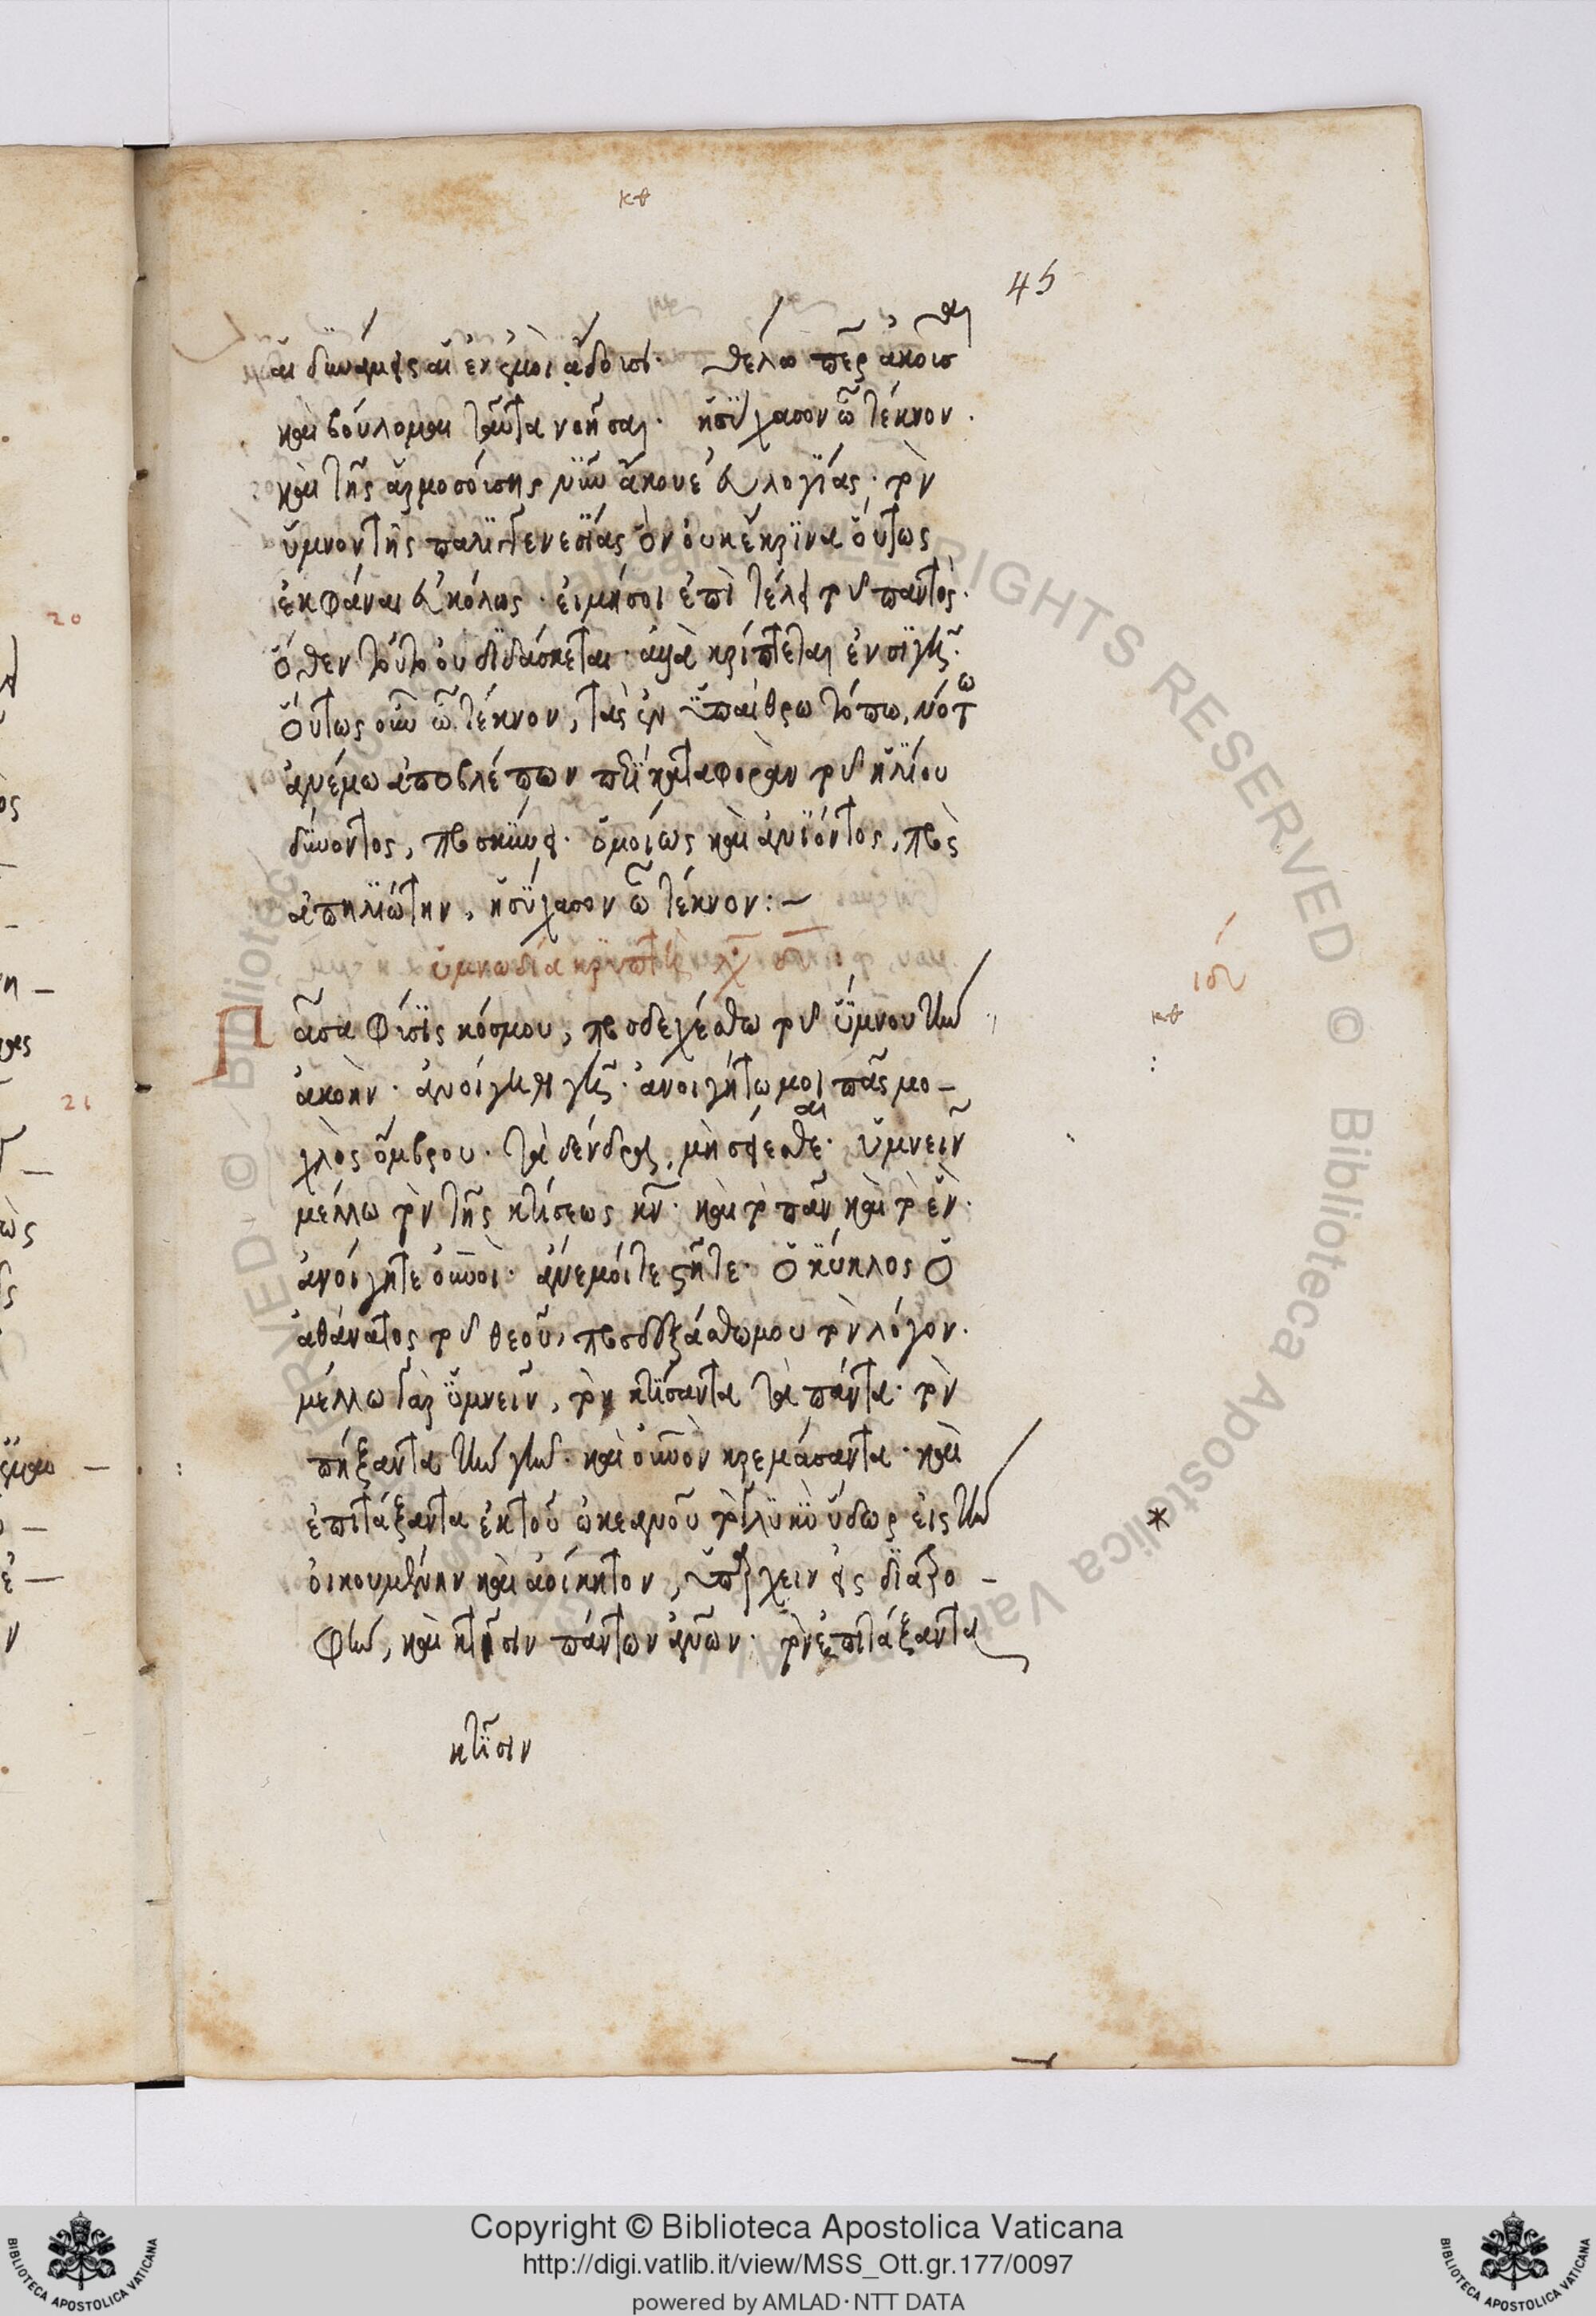 κθ
45
αἱ δυνάμεις αἱ ἐν ἐμοὶ ᾄδουσι. θέλω περ ἀκοῦσαι
καὶ βούλομαι ταῦτα νοῆσαι. ἡσύχασον ὦ τέκνον.
καὶ τῆς ἁρμοσούσης νῦν ἄκουε εὐλογίας. τὸν
ὕμνον τῆς παλιγγενεσίας ὃν οὐκ ἔκρινα οὕτως
ἐκφάναι εὐκόλως. εἰ μή σοι ἐπὶ τέλει τοῦ παντός.
ὅθεν τοῦτο οὐ διδάσκεται. ἀλλὰ κρύπτεται ἐν σιγῇ.
Οὕτως οὖν ὦ τέκνον, στὰς ἐν ὑπαίθρω τόπω, νότω
ἀνέμω ἀποβλέπων περὶ καταφορὰν τοῦ ἡλίου
δύνοντος, προσκύνει. ὁμοίως καὶ ἀνιόντος, πρὸς
ἀπηλιώτην, ἡσύχασον ὦ τέκνον:~
ὑμνωδία κρυπτὴ
Πᾶσα φύσις κόσμου, προσδεχέσθω τοῦ ὕμνου τὴν
ἀκοήν. ἀνοίγηθι γῆ. ἀνοιγήτω μοι πᾶς μο-
χλὸς ὄμβρου. τὰ δένδρα, μὴ σείεσθε. ὑμνεῖν
μέλλω τὸν τῆς κτίσεως κν̄. καὶ τὸ πᾶν καὶ τὸ ἕν.
ἀνοίγητε οὐνοί. ἄνεμοί τε στῆτε. ὁ κύκλος ὁ
ἀθάνατος τοῦ θεοῦ, προσδεξάσθω μου τὸν λόγον.
μέλλω γὰρ ὑμνεῖν, τὸν κτίσαντα τὰ πάντα. τὸν
πήξαντα τὴν γῆν. καὶ οὐνὸν κρεμάσαντα. καὶ
ἐπιτάξαντα ἐκ τοῦ ὠκεανοῦ τὸ γλυκὺ ὕδωρ εἰς τὴν
οἰκουμένην καὶ ἀοίκητον, ὑπάρχειν εἰς διατρο-
φὴν, καὶ κτῆσιν πάντων ἀνων. τὸν ἐπιτάξαντα
κτίσιν
ιδ
κθ
20
21
Copyright © Biblioteca Apostolica Vaticana
http://digi.vatlib.it/view/MSS_Ott.gr.177/0097
powered by AMLAD·NTT DATA